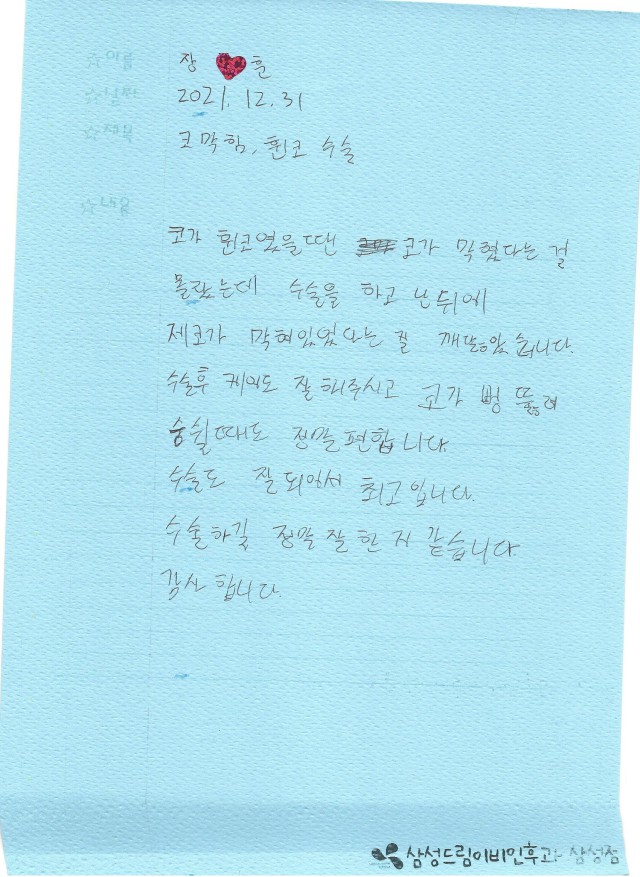 장 훈
2021. 12. 31
코막힘, 휜코 수술
코가 휜코였을땐 코가 막혔다는 걸
몰랐는데 수술을 하고 난뒤에
제코가 막혀있었다는 걸 깨달았습니다.
수술후 케어도 잘해주시고 코가 뻥 뚫려
숨쉴때도 정말편합니다.
수술도 잘 되어서 최고입니다.
수술하길 정말 잘 한 거 같습니다
감사합니다.
삼성드림이비인후과 삼성점